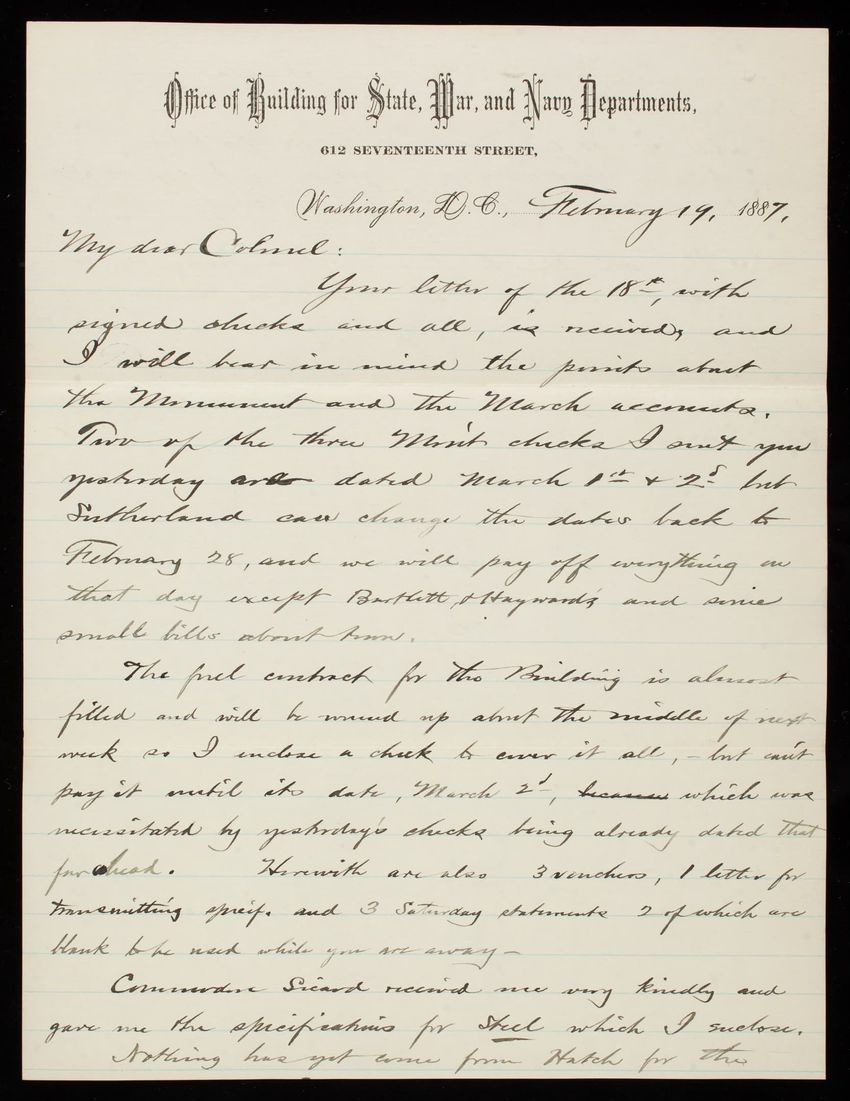 Office of Building for State, War, and Navy Departments,
612 SEVENTEENTH STREET,
Washington, D.C., February 19, 1887.
My dear Colonel:
Your letter of the 18th, with
signed checks and all, is received, and
I will bear in mind the points about
the Monument and the March accounts.
Two of the three Mon't checks I sent you
yesterday are dated March 1st & 2d but
Sutherland can change the dates back to
February 28, and we will pay off everything on
that day except Bartlett & Hayward's and some
small bills about town.
The fuel contract for the Building is almost
filled and will be wound up about the middle of next
week so I enclose a check to cover it all, - but can't
pay it until its date, March 2d, because which was
necessitated by yesterday's checks being already dated that
far ahead. Herewith are also 3 vouchers, 1 letter for
transmitting specif. and 3 Saturday statements 2 of which are
blank to be used while you are away -
Commodore Sicard received me very kindly and
gave me the specifications for Steel which I enclose.
Nothing has yet come from Hatch for the